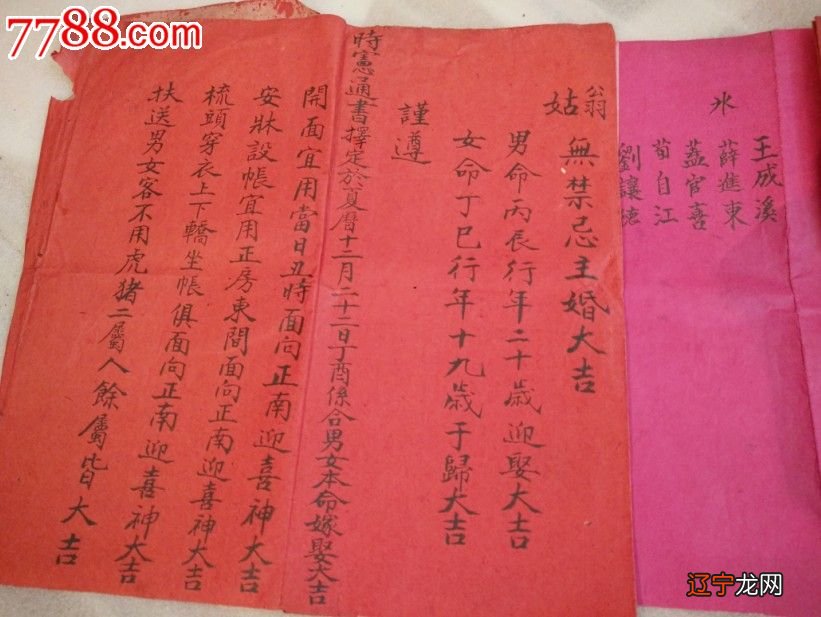 7788.com
翁姑無禁忌主婚大吉
男命丙辰行年二十歲迎娶大吉
女命丁巳行年十九歲于歸大吉
謹遵
時憲通書擇定於夏曆十二月二十二日丁酉係合男女本命嫁娶大吉
開面宜用當日丑時面向正南迎喜神大吉
安牀設帳宜用正房東間面向正南迎喜神大吉
梳頭穿衣上下轎坐帳俱面向正南迎喜神大吉
扶送男女客不用虎猪二屬人餘屬皆大吉
王成溪
氷
薛進東
蓋官喜
荀自江
劉讓德
辽宁龙网